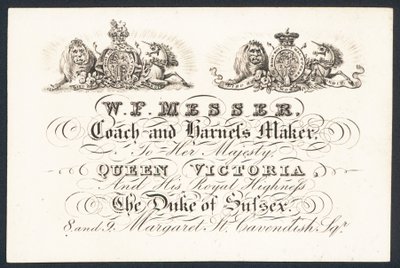 W. F. MESSER,
Coach and Harneſs Maker,
To Her Majesty,
QUEEN VICTORIA,
And His Royal Highneſs
The Duke of Suſsex.
8 and 9, Margaret St. Cavendish Sqr.